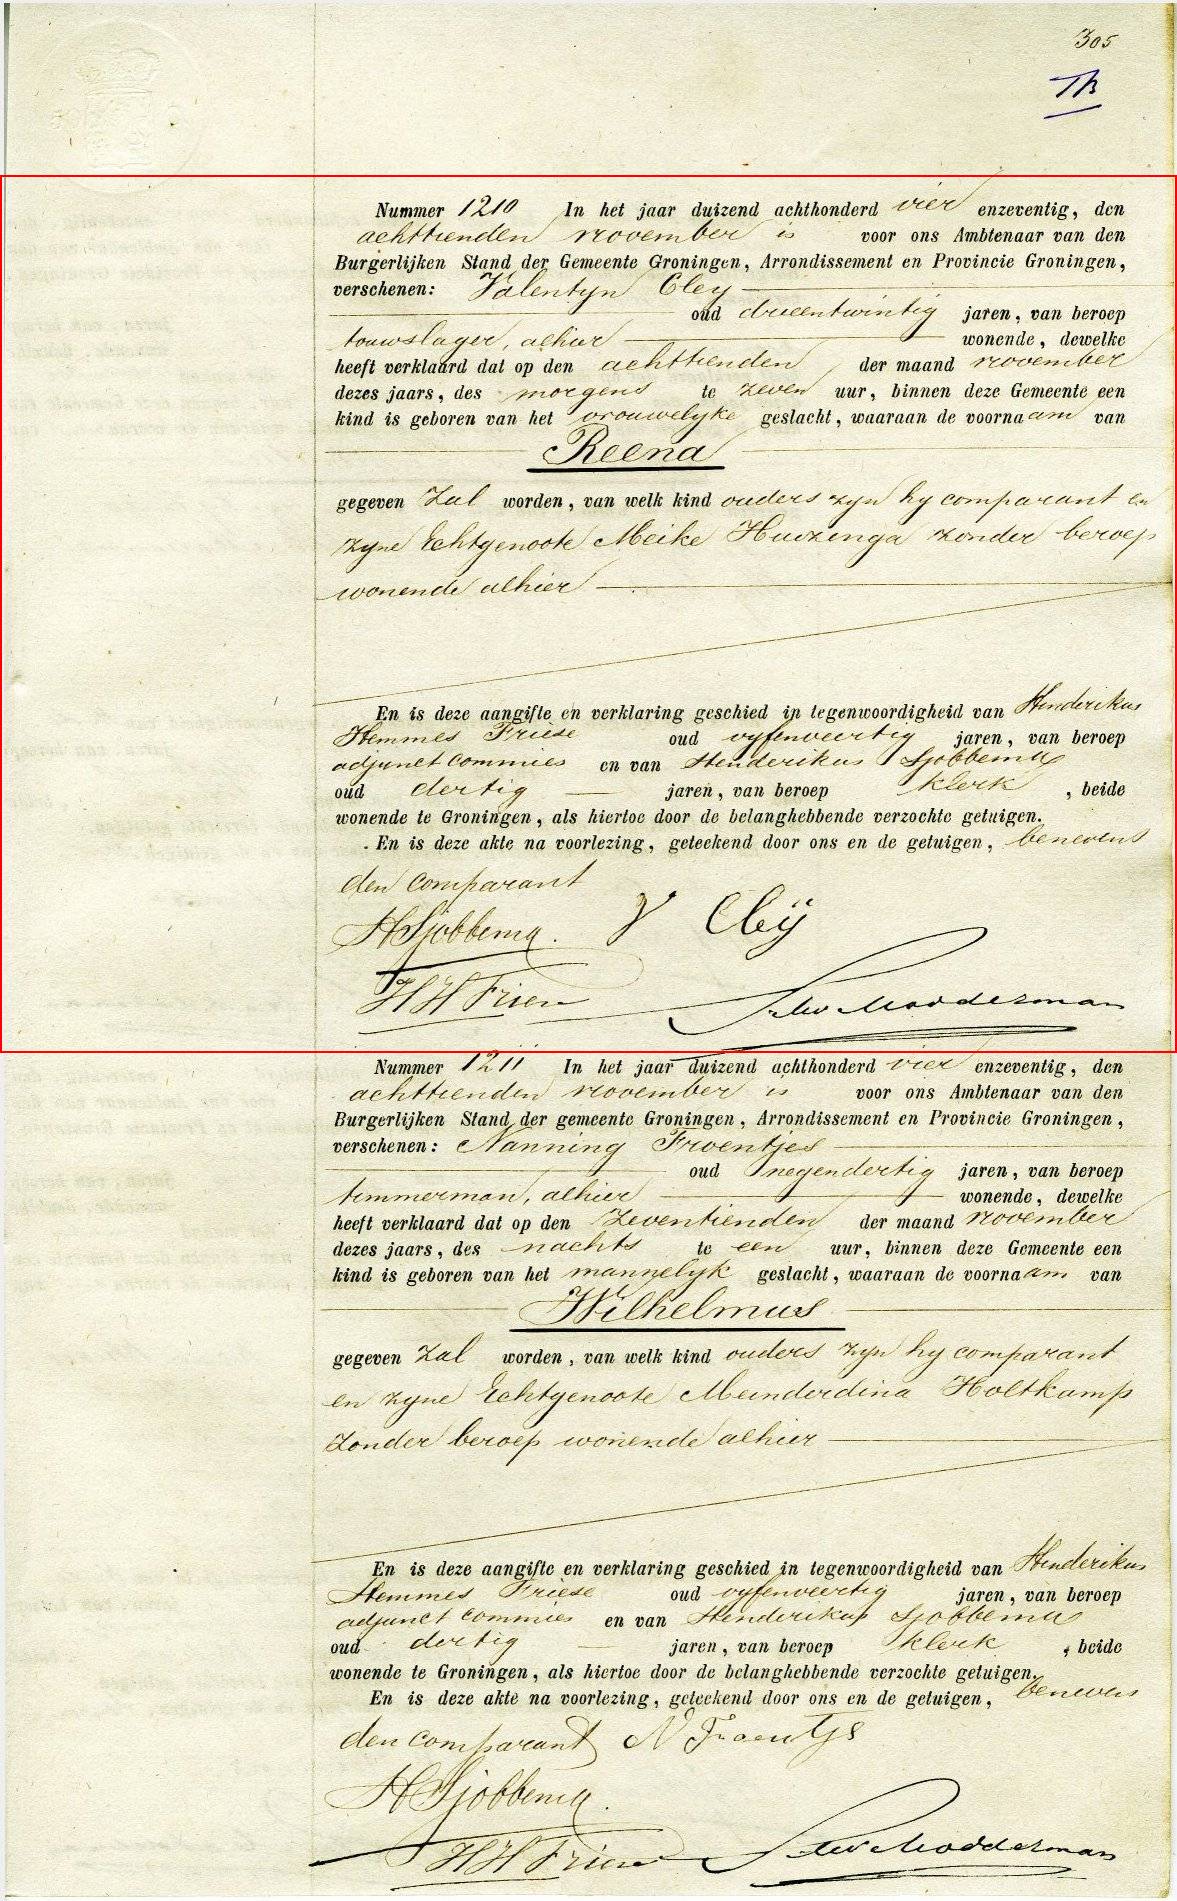 305
Th
Nummer 1210 In het jaar duizend achthonderd vier enzeventig, den
achttienden november is voor ons Ambtenaar van den
Burgerlijken Stand der Gemeente Groningen, Arrondissement en Provincie Groningen,
verschenen: Valentyn Cley
oud drieentwintig jaren, van beroep
touwslager, alhier wonende, dewelke
heeft verklaard dat op den achttienden der maand november
dezes jaars, des morgens te zeven uur, binnen deze Gemeente een
kind is geboren van het vrouwelyke geslacht, waaraan de voornaam van
Reena
gegeven Zal worden, van welk kind ouders zyn hy comparant en
zyne Echtgenoote Meike Huizenga zonder beroep
wonende alhier
En is deze aangifte en verklaring geschied in tegenwoordigheid van Henderikus
Hemmes Friese oud vyfenveertig jaren, van beroep
adjunct commies en van Henderikus Sjobbema
oud dertig jaren, van beroep klerk, beide
wonende te Groningen, als hiertoe door de belanghebbende verzochte getuigen.
En is deze akte na voorlezing, geteekend door ons en de getuigen, benevens
den comparant
HSjobbema. V Cleÿ
HH Friese Modderman
Nummer 1211 In het jaar duizend achthonderd vier enzeventig, den
achttienden november is voor ons Ambtenaar van den
Burgerlijken Stand der gemeente Groningen, Arrondissement en Provincie Groningen,
verschenen: Nanning Froentjes
oud negendertig jaren, van beroep
timmerman, alhier wonende, dewelke
heeft verklaard dat op den Zeventienden der maand november
dezes jaars, des nachts te een uur, binnen deze Gemeente een
kind is geboren van het mannelyk geslacht, waaraan de voornaam van
Wilhelmus
gegeven Zal worden, van welk kind ouders zyn hy comparant
en zyne Echtgenoote Meinderdina Holtkamp
Zonder beroep wonende alhier
En is deze aangifte en verklaring geschied in tegenwoordigheid van Henderikus
Hemmes Friese oud vyfenveertig jaren, van beroep
adjunct commies en van Henderikus Sjobbema
oud dertig jaren, van beroep klerk, beide
wonende te Groningen, als hiertoe door de belanghebbende verzochte getuigen.
En is deze akte na voorlezing, geteekend door ons en de getuigen, benevens
den comparant N Froentjes
HSjobbema.
HH Friese Modderman